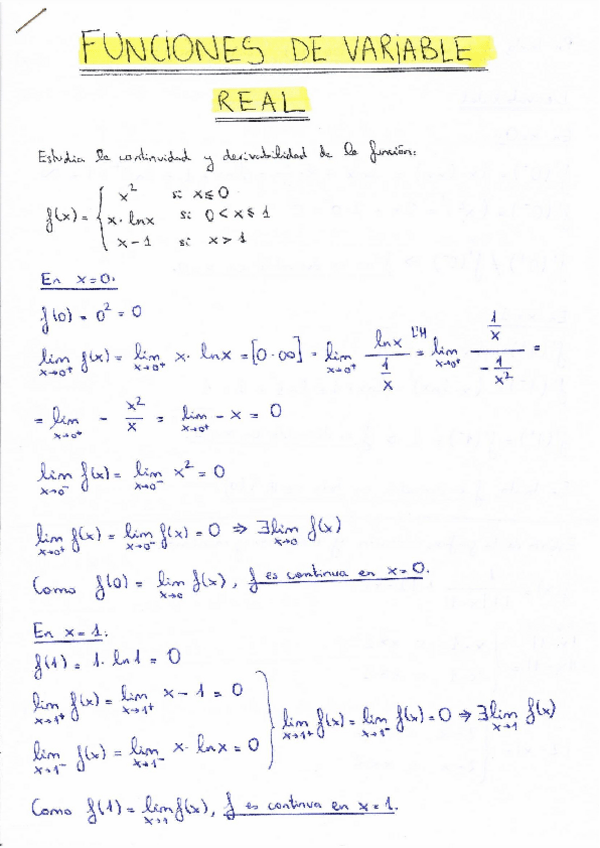 FUNCIONES DE VARIABLE
REAL
Estudia la continuidad y derivabilidad de la función:
f(x) = { x² si x ≤ 0
x · lnx si 0 < x ≤ 1
x - 1 si x > 1
En x=0:
f(0) = 0² = 0
lim x→0⁺ f(x) = lim x→0⁺ x · lnx = [0·∞] = lim x→0⁺ lnx / (1/x) L'H = lim x→0⁺ (1/x) / (-1/x²) =
= lim x→0⁺ - x²/x = lim x→0⁺ - x = 0
lim x→0⁻ f(x) = lim x→0⁻ x² = 0
lim x→0⁺ f(x) = lim x→0⁻ f(x) = 0 ⇒ ∃ lim x→0 f(x)
Como f(0) = lim x→0 f(x), f es continua en x=0.
En x=1:
f(1) = 1 · ln1 = 0
lim x→1⁺ f(x) = lim x→1⁺ x - 1 = 0
lim x→1⁻ f(x) = lim x→1⁻ x · lnx = 0
} lim x→1⁺ f(x) = lim x→1⁻ f(x) = 0 ⇒ ∃ lim x→1 f(x)
Como f(1) = lim x→1 f(x), f es continua en x=1.